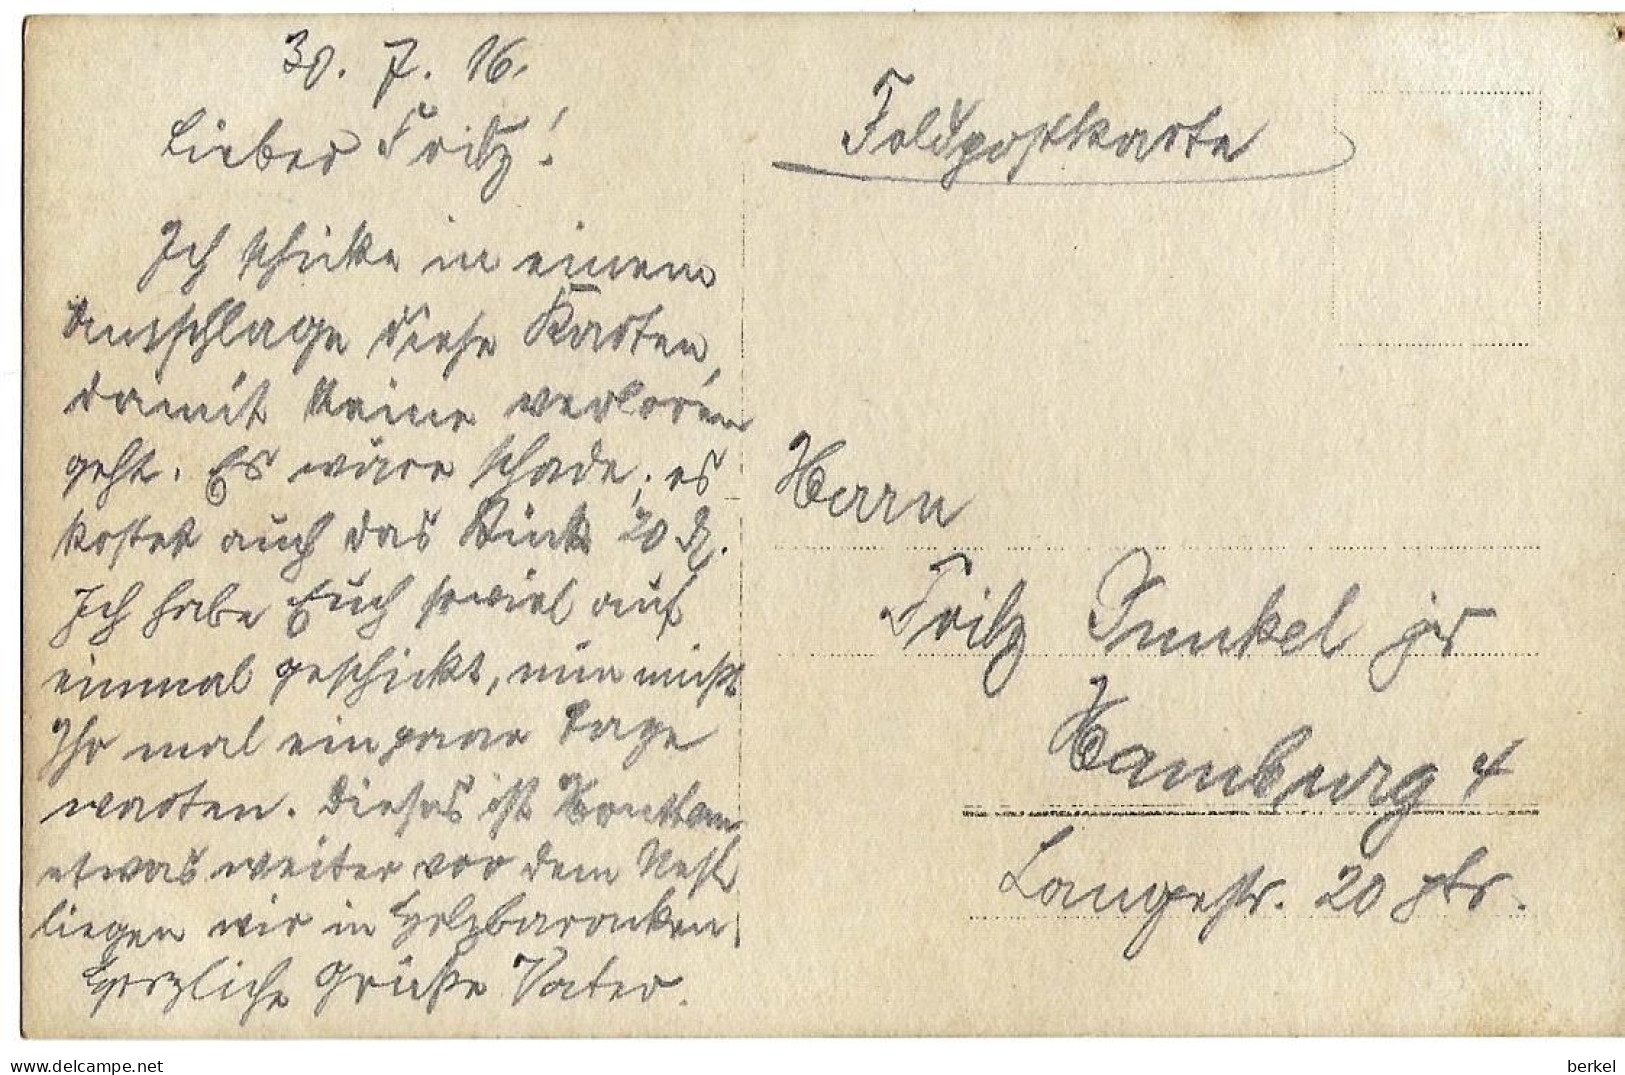 30. 7. 16.
Lieber Fritz!
Ich schicke in einem
Umschlage diese Karten,
damit keine verloren
geht. Es wäre schade, es
kostet auch das Stück 20 Pf.
Ich habe Euch soviel auf
einmal geschickt, nun müßt
Ihr mal ein paar Tage
warten. Dieses ist
etwas weiter vor dem Nest
liegen wir in Holzbaracken.
Herzliche Grüße Vater.
Feldpostkarte
Herrn
Fritz Junkel jr
Hamburg 4
Langestr. 20 ptr.
berkel
delcampe.net